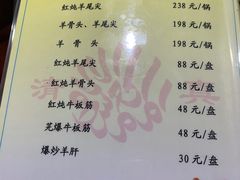 红炖羊尾尖 238元/锅
羊骨头、羊尾尖 198元/锅
羊骨头 198元/锅
红炖羊尾尖 88元/盘
红炖羊骨头 88元/盘
红炖牛板筋 48元/盘
芫爆牛板筋 48元/盘
爆炒羊肝 30元/盘
清真